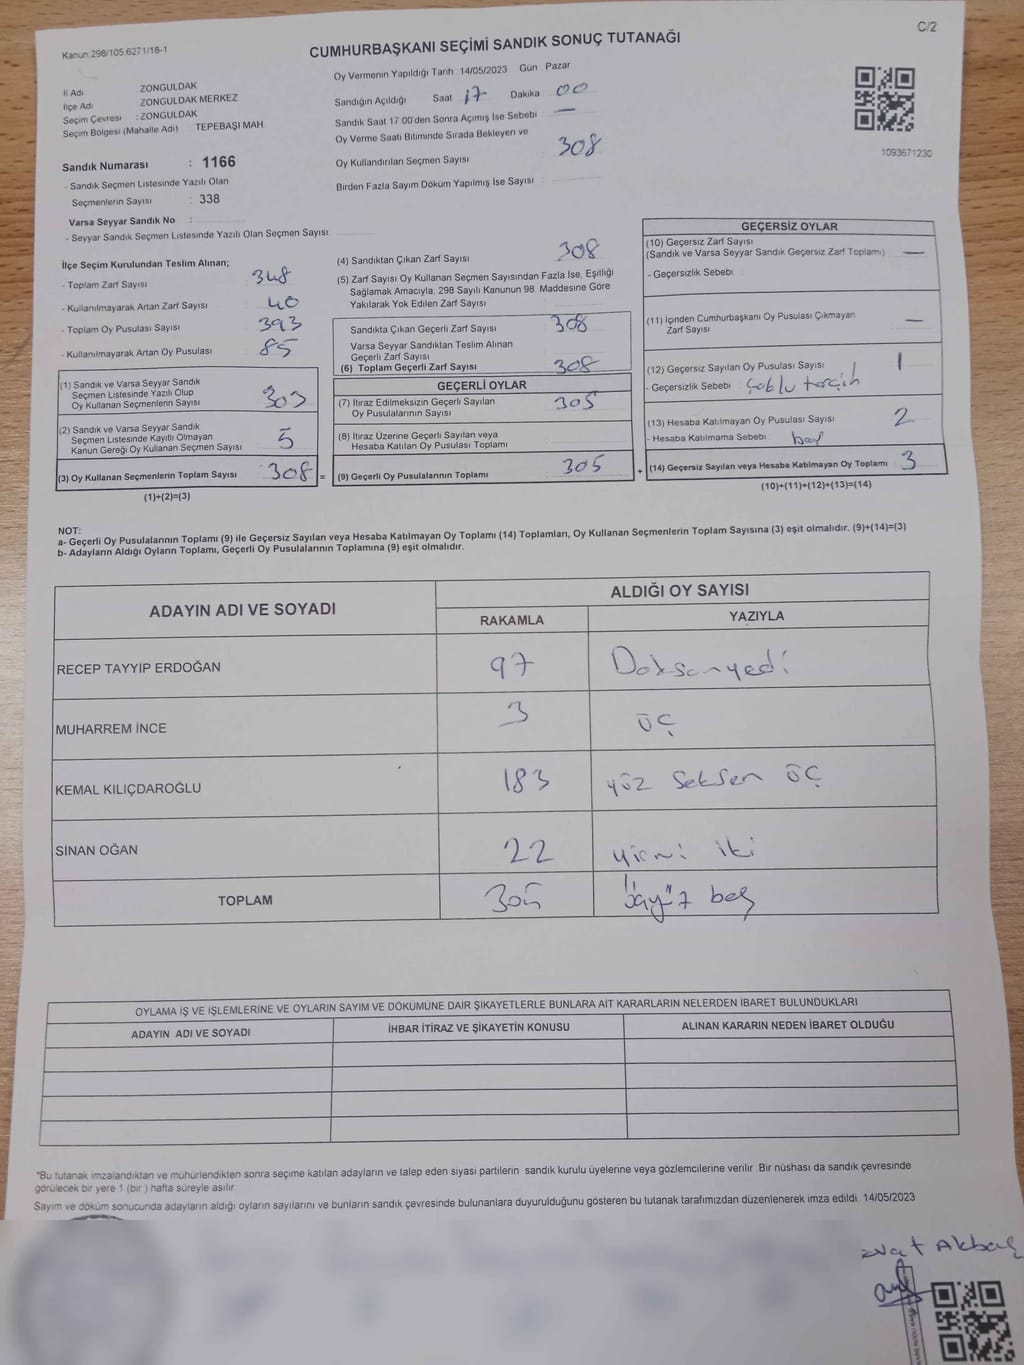 C/2
Kanun.298/105,6271/18-1
CUMHURBAŞKANI SEÇİMİ SANDIK SONUÇ TUTANAĞI
İl Adı ZONGULDAK
İlçe Adı : ZONGULDAK MERKEZ
Seçim Çevresi : ZONGULDAK
Seçim Bölgesi (Mahalle Adı) TEPEBAŞI MAH
Oy Vermenin Yapıldığı Tarih :14/05/2023 Gün : Pazar
Sandığın Açıldığı Saat 17 Dakika 00
Sandık Saat 17:00'den Sonra Açımış İse Sebebi : —
Oy Verme Saati Bitiminde Sırada Bekleyen ve
Oy Kullandırılan Seçmen Sayısı 308
Birden Fazla Sayım Döküm Yapılmış İse Sayısı :
1093671230
Sandık Numarası : 1166
- Sandık Seçmen Listesinde Yazılı Olan
Seçmenlerin Sayısı : 338
Varsa Seyyar Sandık No :
- Seyyar Sandık Seçmen Listesinde Yazılı Olan Seçmen Sayısı:
İlçe Seçim Kurulundan Teslim Alınan;
- Toplam Zarf Sayısı : 348
- Kullanılmayarak Artan Zarf Sayısı : 40
- Toplam Oy Pusulası Sayısı : 393
- Kullanılmayarak Artan Oy Pusulası : 85
(1) Sandık ve Varsa Seyyar Sandık
Seçmen Listesinde Yazılı Olup
Oy Kullanan Seçmenlerin Sayısı : 303
(2) Sandık ve Varsa Seyyar Sandık
Seçmen Listesinde Kayıtlı Olmayan
Kanun Gereği Oy Kullanan Seçmen Sayısı : 5
(3) Oy Kullanan Seçmenlerin Toplam Sayısı : 308 =
(1)+(2)=(3)
(4) Sandıktan Çıkan Zarf Sayısı : 308
(5) Zarf Sayısı Oy Kullanan Seçmen Sayısından Fazla İse, Eşitliği
Sağlamak Amacıyla; 298 Sayılı Kanunun 98. Maddesine Göre
Yakılarak Yok Edilen Zarf Sayısı :
Sandıkta Çıkan Geçerli Zarf Sayısı : 308
Varsa Seyyar Sandıktan Teslim Alınan
Geçerli Zarf Sayısı :
(6) Toplam Geçerli Zarf Sayısı : 308
GEÇERLİ OYLAR
(7) İtiraz Edilmeksizin Geçerli Sayılan
Oy Pusulalarının Sayısı : 305
(8) İtiraz Üzerine Geçerli Sayılan veya
Hesaba Katılan Oy Pusulası Toplamı :
(9) Geçerli Oy Pusulalarının Toplamı : 305 +
GEÇERSİZ OYLAR
(10) Geçersiz Zarf Sayısı
(Sandık ve Varsa Seyyar Sandık Geçersiz Zarf Toplamı) : —
- Geçersizlik Sebebi :
(11) İçinden Cumhurbaşkanı Oy Pusulası Çıkmayan
Zarf Sayısı : —
(12) Geçersiz Sayılan Oy Pusulası Sayısı : 1
- Geçersizlik Sebebi : tercih
(13) Hesaba Katılmayan Oy Pusulası Sayısı : 2
- Hesaba Katılmama Sebebi : boş
(14) Geçersiz Sayılan veya Hesaba Katılmayan Oy Toplamı : 3
(10)+(11)+(12)+(13)=(14)
NOT:
a- Geçerli Oy Pusulalarının Toplamı (9) ile Geçersiz Sayılan veya Hesaba Katılmayan Oy Toplamı (14) Toplamları, Oy Kullanan Seçmenlerin Toplam Sayısına (3) eşit olmalıdır. (9)+(14)=(3)
b- Adayların Aldığı Oyların Toplamı, Geçerli Oy Pusulalarının Toplamına (9) eşit olmalıdır.
ADAYIN ADI VE SOYADI
ALDIĞI OY SAYISI
RAKAMLA YAZIYLA
RECEP TAYYİP ERDOĞAN 97 Doksanyedi
MUHARREM İNCE 3 üç
KEMAL KILIÇDAROĞLU 183 yüz seksen üç
SİNAN OĞAN 22 yirmi iki
TOPLAM 305 beş
OYLAMA İŞ VE İŞLEMLERİNE VE OYLARIN SAYIM VE DÖKÜMÜNE DAİR ŞİKAYETLERLE BUNLARA AİT KARARLARIN NELERDEN İBARET BULUNDUKLARI
ADAYIN ADI VE SOYADI İHBAR İTİRAZ VE ŞİKAYETİN KONUSU ALINAN KARARIN NEDEN İBARET OLDUĞU
*Bu tutanak imzalandıktan ve mühürlendikten sonra seçime katılan adayların ve talep eden siyasi partilerin sandık kurulu üyelerine veya gözlemcilerine verilir. Bir nüshası da sandık çevresinde
görülecek bir yere 1 (bir ) hafta süreyle asılır.
Sayım ve döküm sonucunda adayların aldığı oyların sayılarını ve bunların sandık çevresinde bulunanlara duyurulduğunu gösteren bu tutanak tarafımızdan düzenlenerek imza edildi. 14/05/2023
Akbaş